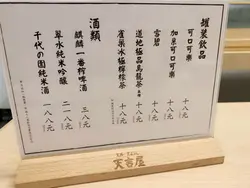 罐裝飲品
可口可樂 十八元
可口可樂 十八元
雪碧 十八元
道地極品烏龍茶 十八元
雀巢冰極檸檬茶 十八元
酒類
麒麟一番榨啤酒 三八元
翠水純米吟釀 二一八元
千代の園純米酒 一八八元
天吉屋